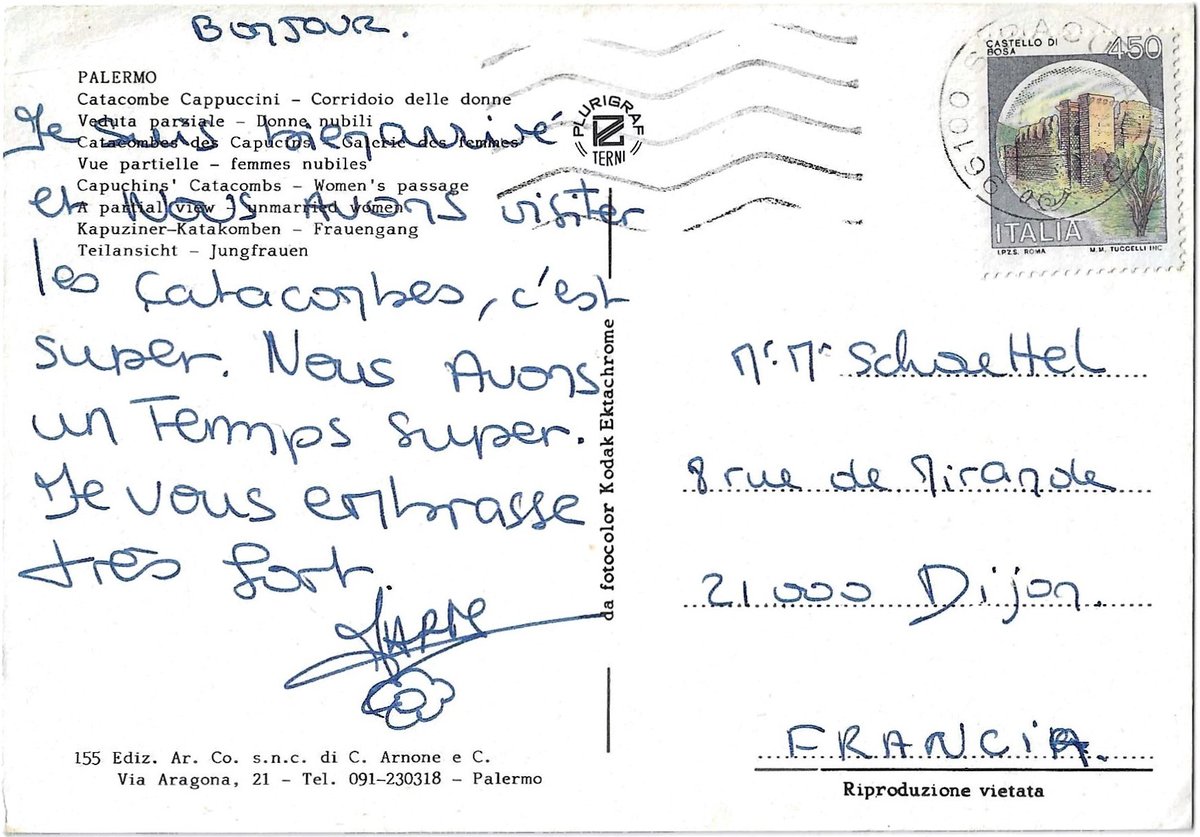 BONJOUR.
PALERMO
Catacombe Cappuccini - Corridoio delle donne
Veduta parziale - Donne nubili
Catacombes des Capucins - Galerie des femmes
Vue partielle - femmes nubiles
Capuchins' Catacombs - Women's passage
A partial view - unmarried women
Kapuziner-Katakomben - Frauengang
Teilansicht - Jungfrauen
Je suis bien arrivé
et Nous Avons visiter
les Catacombes, c'est
super. Nous Avons
un Temps super.
Je vous embrasse
très fort.
155 Ediz. Ar. Co. s.n.c. di C. Arnone e C.
Via Aragona, 21 - Tel. 091-230318 - Palermo
PLURIGRAF
TERNI
da fotocolor Kodak Ektachrome
96100
CASTELLO DI
BOSA
450
ITALIA
I.P.Z.S. ROMA
M.M. TUCCELLI INC
Mr. Me Schoettel
8 rue de Mirande
21000 Dijon.
FRANCIA.
Riproduzione vietata